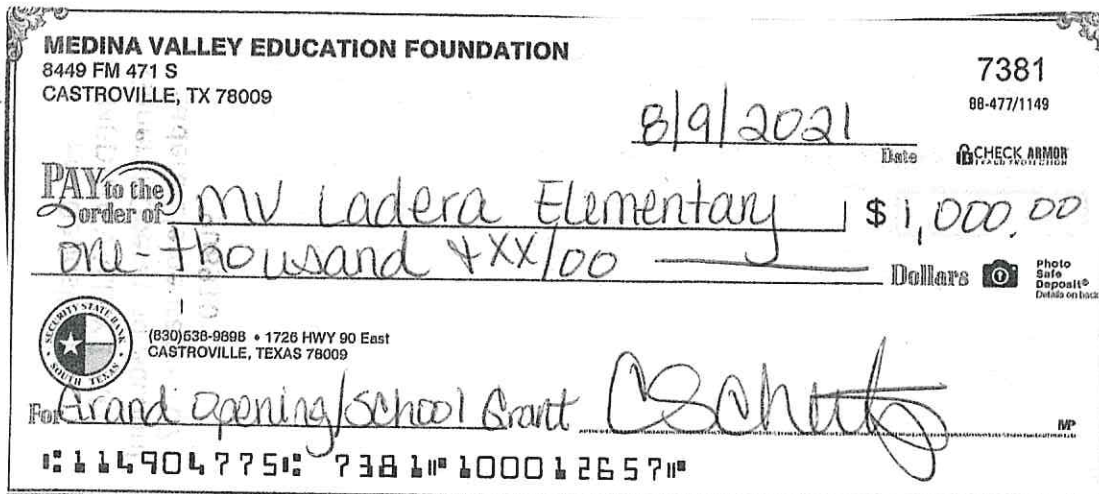 MEDINA VALLEY EDUCATION FOUNDATION
8449 FM 471 S
CASTROVILLE, TX 78009
7381
88-477/1149
8/9/2021
Date
CHECK ARMOR
PAY to the order of MV Ladera Elementary $ 1,000.00
one-thousand + XX/00 Dollars
Photo
Safe
Deposit®
Details on back
SECURITY STATE BANK
SOUTH TEXAS
(830)538-9898 • 1726 HWY 90 East
CASTROVILLE, TEXAS 78009
For Grand opening/School Grant
MP
⑆114904775⑆ 7381⑈ 100012657⑈